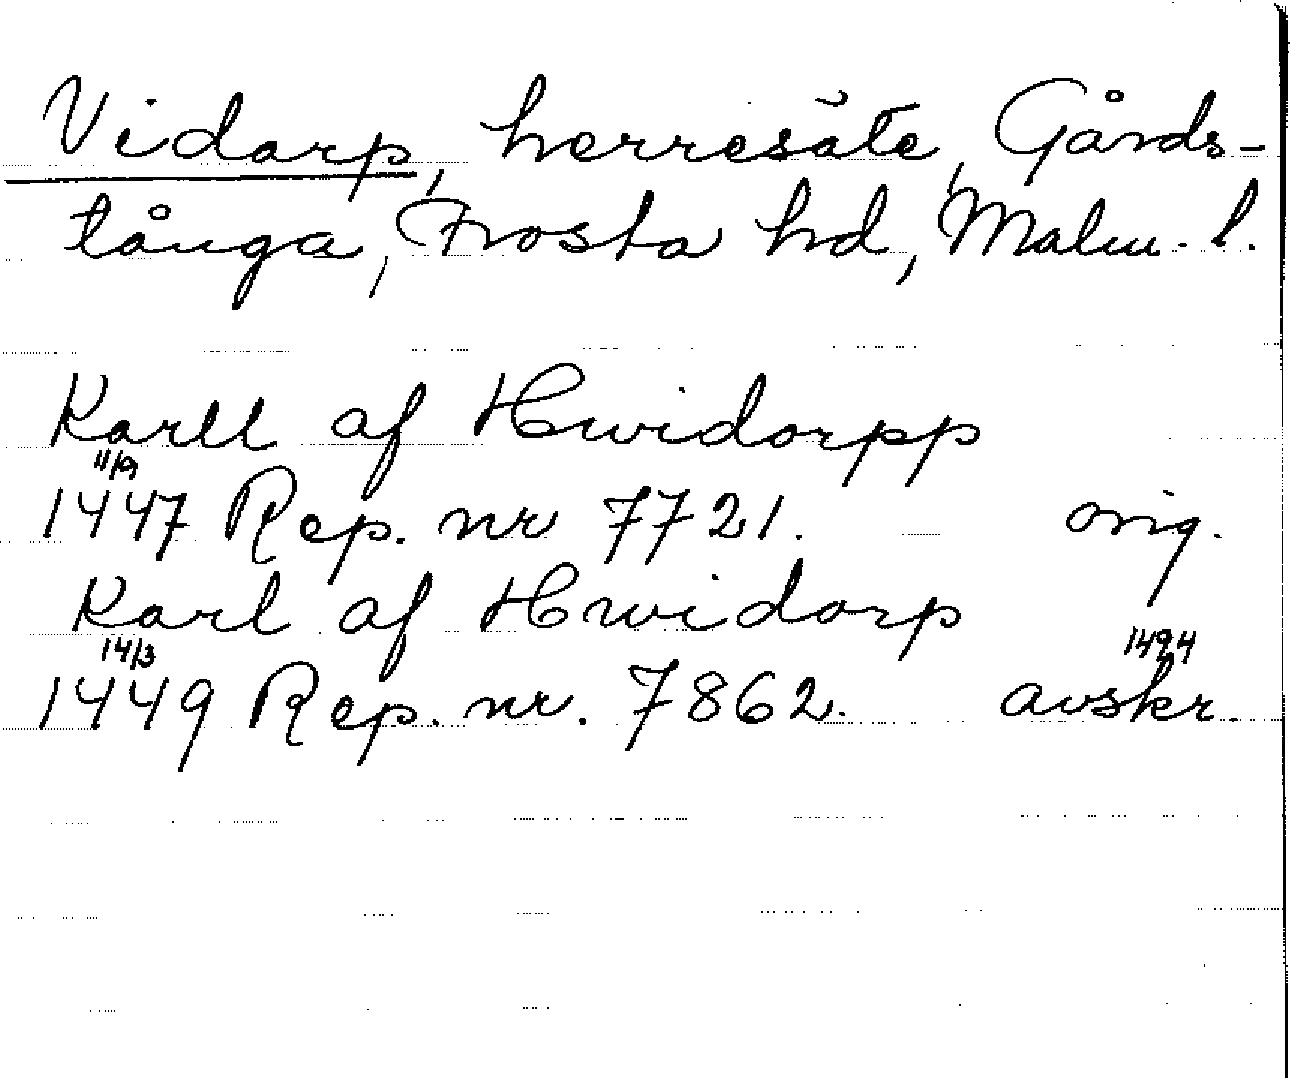 Vidarp, herresäte, Gårds-
tånga, Frosta hd, Malm. l.
Karll af Hwidorpp
11/9
1447 Rep. nr 7721. orig.
Karl af Hwidorp
14/3 1494
1449 Rep. nr. 7862. avskr.